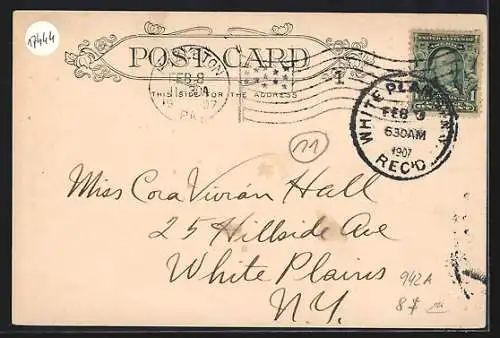 17444
POST CARD
THIS SIDE FOR THE ADDRESS
FEB 8
1907
PA.
1
WHITE PLAINS N.Y.
FEB 9
630AM
1907
REC'D.
11
Miss Cora Vivian Hall
25 Hillside Ave
White Plains
N.Y.
942A
8$